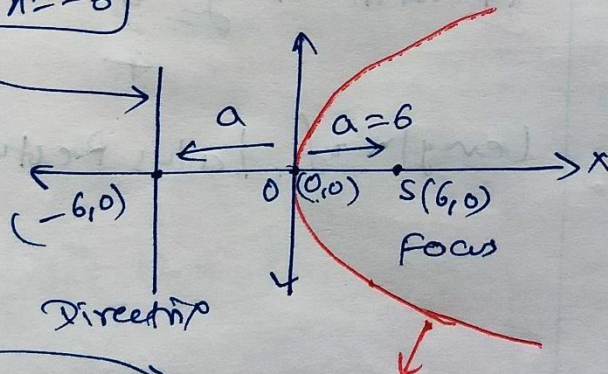 x = -6
a
a = 6
X
(-6,0)
O (0,0)
S(6,0)
Focus
Directrix